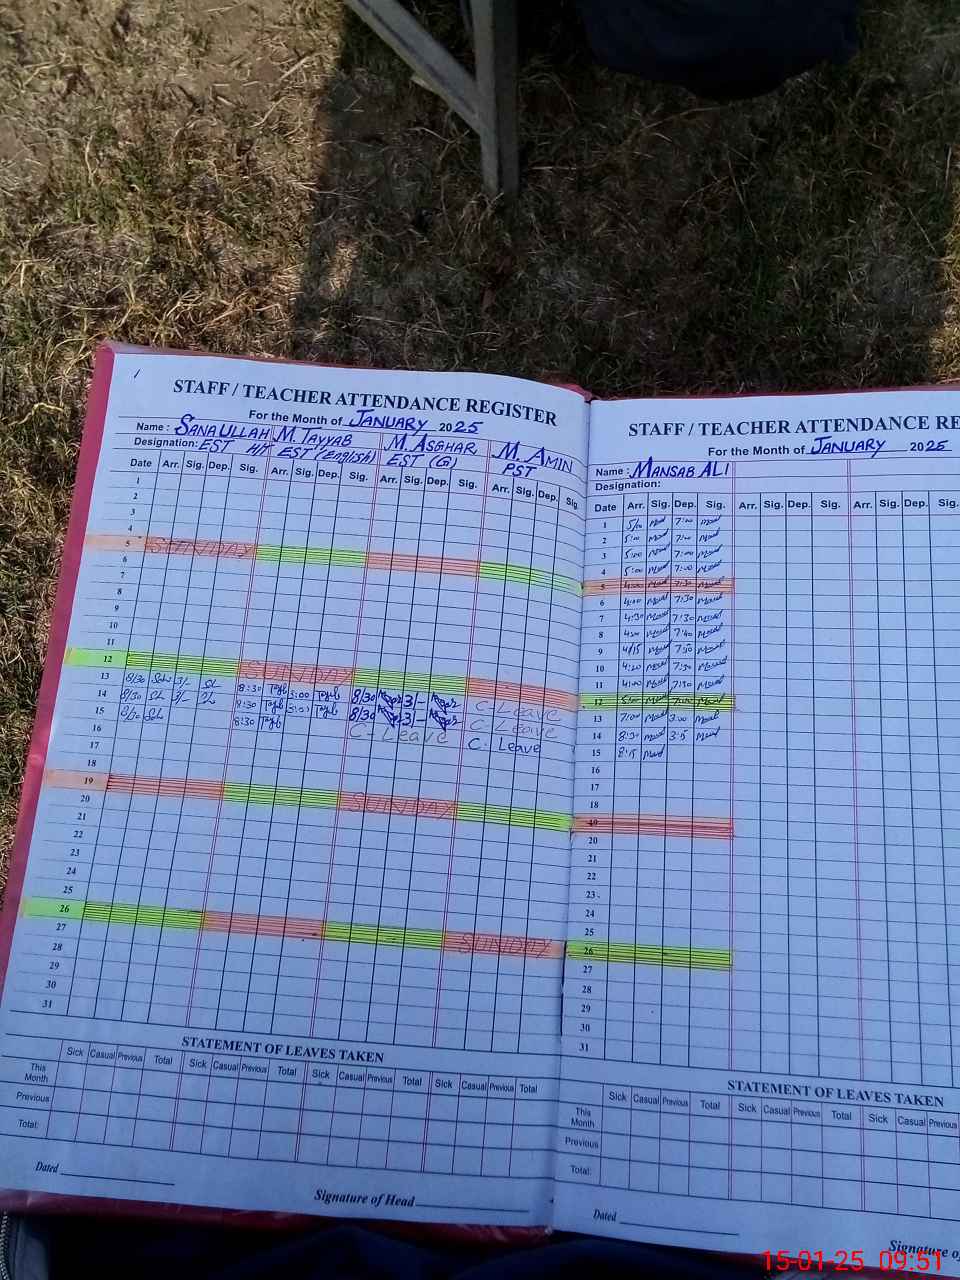 STAFF / TEACHER ATTENDANCE REGISTER
For the Month of JANUARY 2025
Name : SANAULLAH M. TAYYAB M. ASGHAR M. AMIN
Designation: EST EST (English) EST (G) PST
Date Arr. Sig. Dep. Sig. Arr. Sig. Dep. Sig. Arr. Sig. Dep. Sig. Arr. Sig. Dep. Sig.
1
2
3
4
5 SUNDAY
6
7
8
9
10
11
12 SUNDAY
13 8/30 3/- 8:30 Tayb 3:00 Tayb 8/30 3/- C-Leave
14 8/30 3/- 8:30 Tayb 3:00 Tayb 8/30 3/- C-Leave
15 8/30 8:30 Tayb C-Leave C. Leave
16
17
18
19 SUNDAY
20
21
22
23
24
25
26 SUNDAY
27
28
29
30
31
STATEMENT OF LEAVES TAKEN
Sick Casual Previous Total Sick Casual Previous Total Sick Casual Previous Total Sick Casual Previous Total
This Month
Previous
Total:
Dated
Signature of Head
STAFF / TEACHER ATTENDANCE RE
For the Month of JANUARY 2025
Name : MANSAB ALI
Designation:
Date Arr. Sig. Dep. Sig. Arr. Sig. Dep. Sig. Arr. Sig.
1 5/00 7:00
2 5:00 7:00
3 5:00 7:00
4 5:00 7:00
5 4:00 7:30
6 4:00 7:30
7 4:30 7:30
8 7:40
9 4/15 7:30
10 4:20 7:30
11 4:00 7:30
12 7:00
13 7:00 3:00
14 8:30 3:15
15 8:15
16
17
18
19
20
21
22
23
24
25
26
27
28
29
30
31
STATEMENT OF LEAVES TAKEN
Sick Casual Previous Total Sick Casual Previous Total Sick Casual Previous
This Month
Previous
Total:
Dated
Signature of
15-01-25 09:51